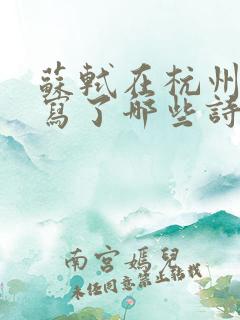 蘇軾在杭州
寫了哪些詩
南宮媽兒
未经同意禁止转载